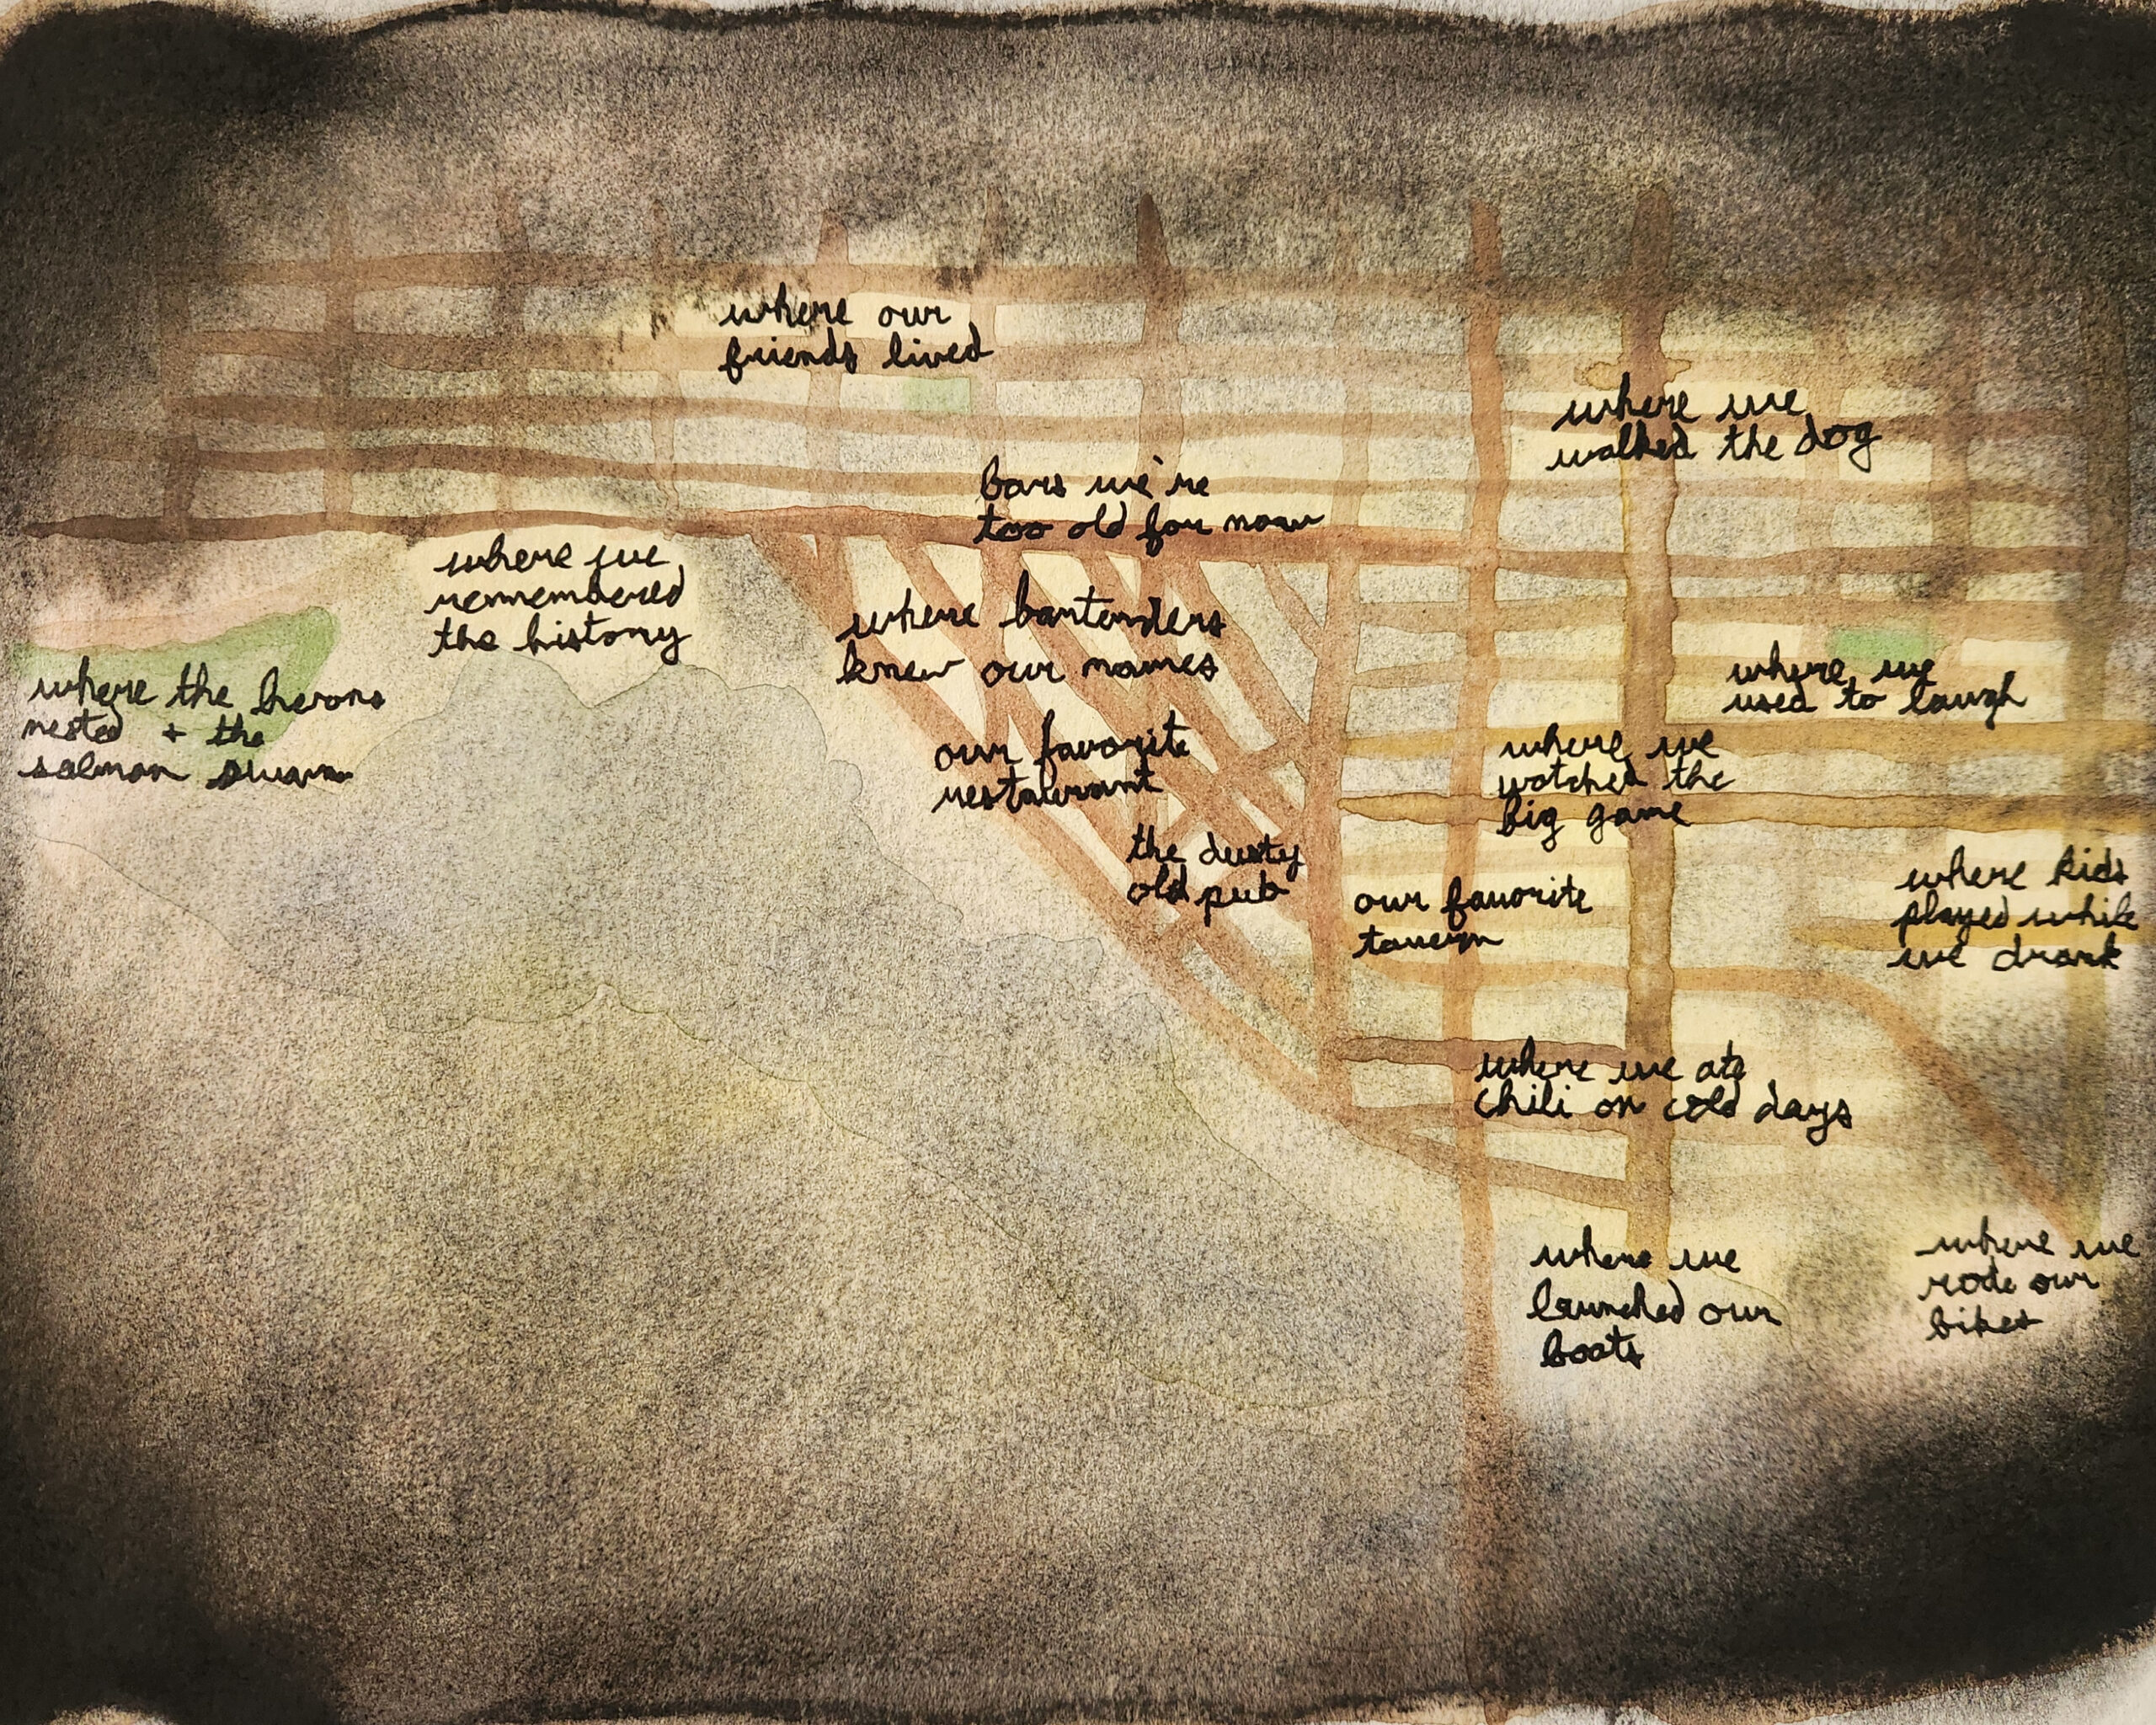 where our
friends lived
where we
walked the dog
bars we're
too old for now
where we
remembered
the history
where bartenders
knew our names
where the herons
nested + the
salmon swam
where we
used to laugh
our favorite
restaurant
where we
watched the
big game
the dusty
old pub
our favorite
tavern
where kids
played while
we drank
where we ate
chili on cold days
where we
launched our
boats
where we
rode our
bikes